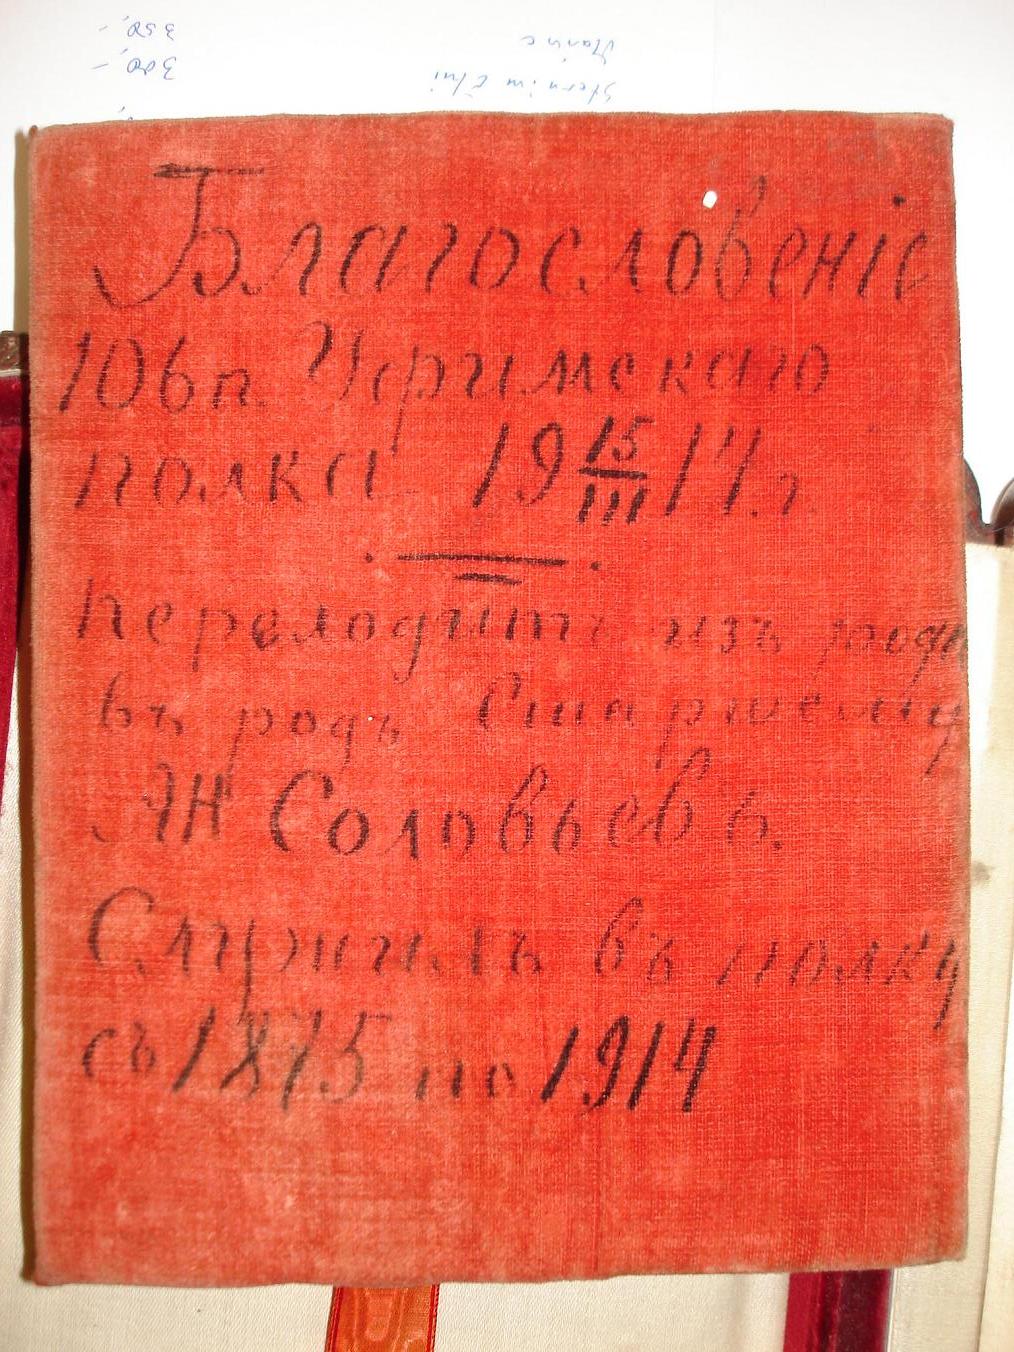 350,-
300,-
Благословеніе
106п. Уфимскаго
полка 19 15/III 14.г.
Переходитъ изъ рода
въ родъ Старшему
ЯН Соловьевъ.
Служилъ въ полку
съ 1875 по 1914